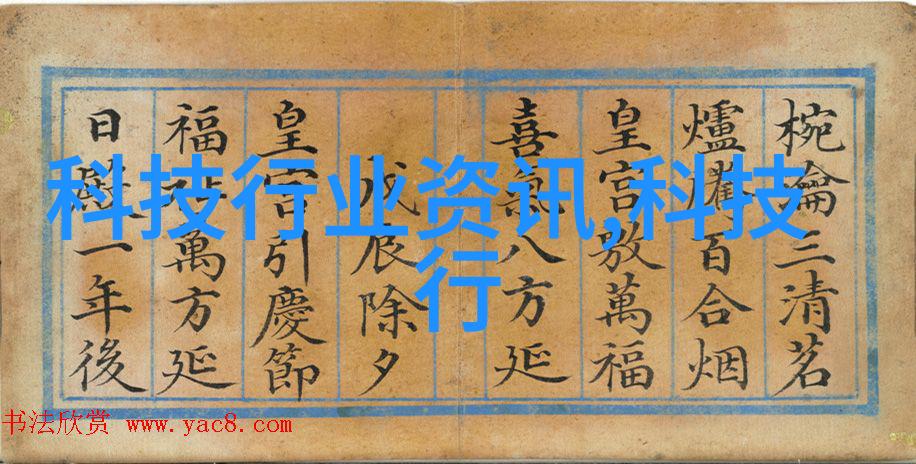 椀瀹三清茗
爐騰百合烟
皇宮敷萬福
喜氣八方延
戊辰除夕
皇宮引慶節
福祉萬方延
日一年後
科技行业资讯,科技
行
书法欣赏 www.yac8.com